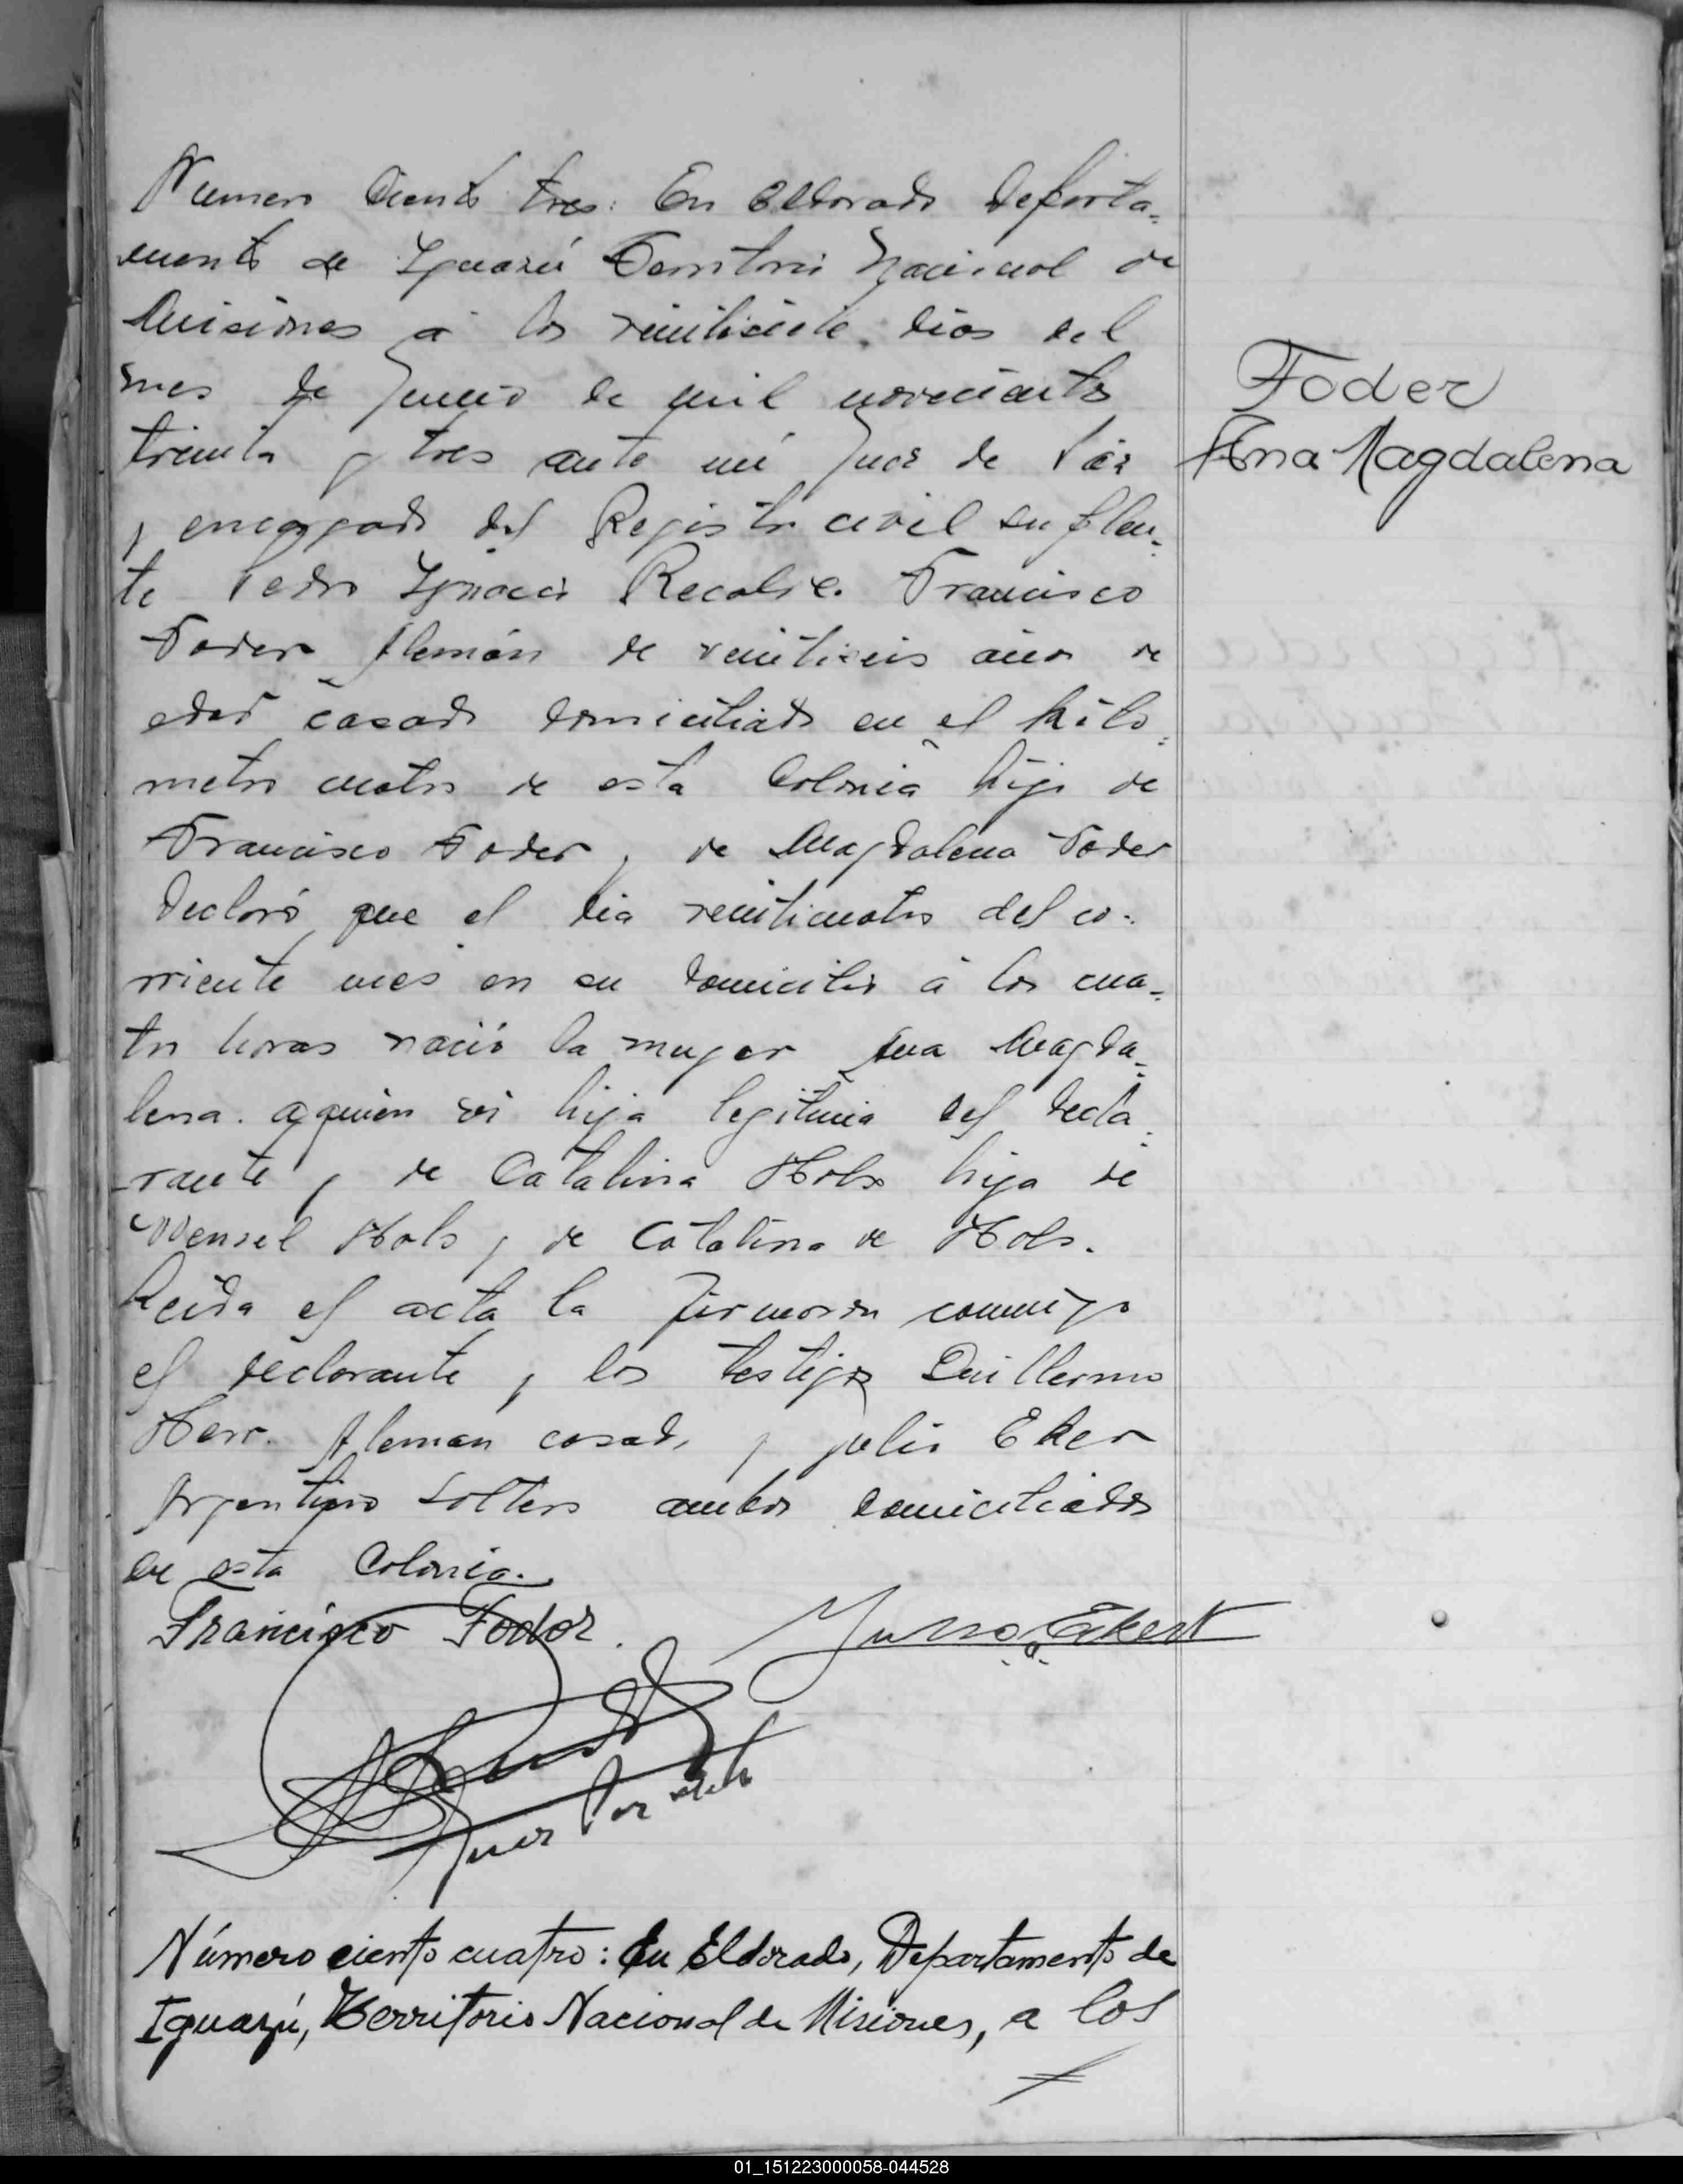 Numero Ciento tres: En Eldorado Departa-
mento de Iguazú Territorio Nacional de
Misiones á los veintisiete dias del
mes de Junio de mil novecientos
treinta y tres ante mi Juez de Paz
y encargado del Registro civil suplen-
te Pedro Ignacio Recalde. Francisco
Foder Alemán de veintiseis años de
edad casado domiciliado en el kilo-
metro cuatro de esta Colonia hijo de
Francisco Foder y de Magdalena Foder
Declaró que el dia veinticuatro del co-
rriente mes en su domicilio á las cua-
tro horas nació la mujer Ana Magda-
lena. aquien vi hija legitima del decla-
rante y de Catalina Hols hija de
Wensel Hols y de Catalina de Hols.
Leida el acta la firmaron conmigo
el declarante y los testigos Guillermo
Herr. Aleman casado y julio Eker
Argentino Soltero ambos domiciliados
en esta Colonia.
Foder
Ana Magdalena
Francisco Fodor.
Julio Ekert
Juez Paz
Número ciento cuatro: En Eldorado, Departamento de
Iguazú, Territorio Nacional de Misiones, a los
01_151223000058-044528